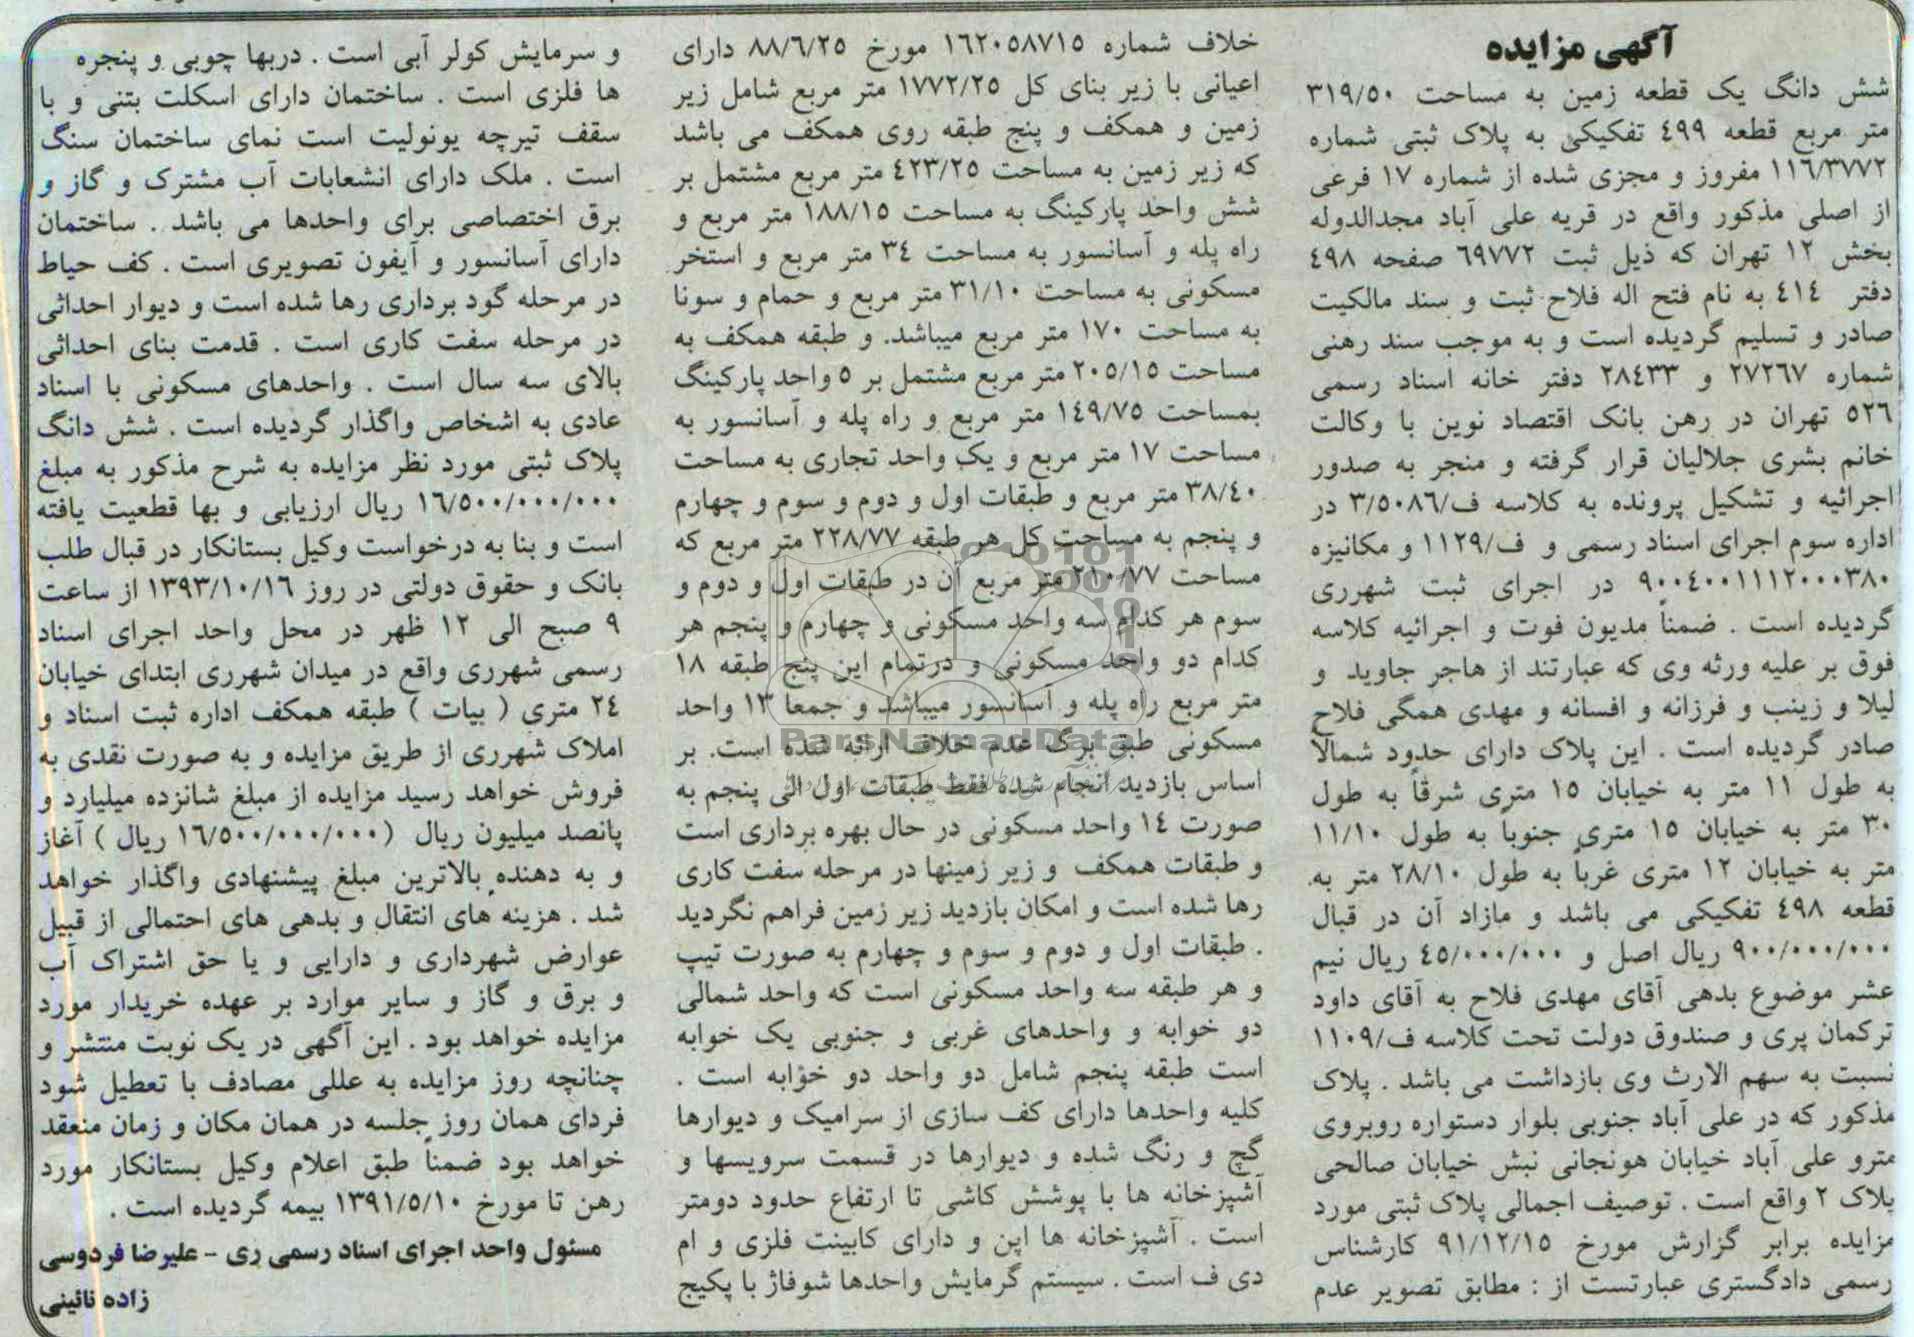 آگهی مزایده
شش دانگ یک قطعه زمین به مساحت ۳۱۹/۵۰
متر مربع قطعه ۴۹۹ تفکیکی به پلاک ثبتی شماره
۱۱۶/۳۷۷۲ مفروز و مجزی شده از شماره ۱۷ فرعی
از اصلی مذکور واقع در قریه علی آباد مجدالدوله
بخش ۱۲ تهران که ذیل ثبت ۶۹۷۷۲ صفحه ۴۹۸
دفتر ۴۱۴ به نام فتح اله فلاح ثبت و سند مالکیت
صادر و تسلیم گردیده است و به موجب سند رهنی
شماره ۲۷۲۶۷ و ۲۸۴۳۳ دفتر خانه اسناد رسمی
۵۲۶ تهران در رهن بانک اقتصاد نوین با وکالت
خانم بشری جلالیان قرار گرفته و منجر به صدور
اجرائیه و تشکیل پرونده به کلاسه ف/۳/۵۰۸۶ در
اداره سوم اجرای اسناد رسمی و ف/۱۱۲۹ و مکانیزه
۹۰۰۴۰۰۱۱۱۲۰۰۰۳۸۰ در اجرای ثبت شهرری
گردیده است . ضمناً مدیون فوت و اجرائیه کلاسه
فوق بر علیه ورثه وی که عبارتند از هاجر جاوید و
لیلا و زینب و فرزانه و افسانه و مهدی همگی فلاح
صادر گردیده است . این پلاک دارای حدود شمالاً
به طول ۱۱ متر به خیابان ۱۵ متری شرقاً به طول
۳۰ متر به خیابان ۱۵ متری جنوباً به طول ۱۱/۱۰
متر به خیابان ۱۲ متری غرباً به طول ۲۸/۱۰ متر به
قطعه ۴۹۸ تفکیکی می باشد و مازاد آن در قبال
۹۰۰/۰۰۰/۰۰۰ ریال اصل و ۴۵/۰۰۰/۰۰۰ ریال نیم
عشر موضوع بدهی آقای مهدی فلاح به آقای داود
ترکمان پری و صندوق دولت تحت کلاسه ف/۱۱۰۹
نسبت به سهم الارث وی بازداشت می باشد . پلاک
مذکور که در علی آباد جنوبی بلوار دستواره روبروی
مترو علی آباد خیابان هونجانی نبش خیابان صالحی
پلاک ۲ واقع است . توصیف اجمالی پلاک ثبتی مورد
مزایده برابر گزارش مورخ ۹۱/۱۲/۱۵ کارشناس
رسمی دادگستری عبارتست از : مطابق تصویر عدم
خلاف شماره ۱۶۲۰۵۸۷۱۵ مورخ ۸۸/۶/۲۵ دارای
اعیانی با زیر بنای کل ۱۷۷۲/۲۵ متر مربع شامل زیر
زمین و همکف و پنج طبقه روی همکف می باشد
که زیر زمین به مساحت ۴۲۳/۲۵ متر مربع مشتمل بر
شش واحد پارکینگ به مساحت ۱۸۸/۱۵ متر مربع و
راه پله و آسانسور به مساحت ۳۴ متر مربع و استخر
مسکونی به مساحت ۳۱/۱۰ متر مربع و حمام و سونا
به مساحت ۱۷۰ متر مربع میباشد. و طبقه همکف به
مساحت ۲۰۵/۱۵ متر مربع مشتمل بر ۵ واحد پارکینگ
بمساحت ۱۴۹/۷۵ متر مربع و راه پله و آسانسور به
مساحت ۱۷ متر مربع و یک واحد تجاری به مساحت
۳۸/۴۰ متر مربع و طبقات اول و دوم و سوم و چهارم
و پنجم به مساحت کل هر طبقه ۲۲۸/۷۷ متر مربع که
مساحت ۲۱۰/۷۷ متر مربع آن در طبقات اول و دوم و
سوم هر کدام سه واحد مسکونی و چهارم و پنجم هر
کدام دو واحد مسکونی و درتمام این پنج طبقه ۱۸
متر مربع راه پله و آسانسور میباشد و جمعا ۱۳ واحد
مسکونی طبق برگ عدم خلاف ارائه شده است. بر
اساس بازدید انجام شده فقط طبقات اول الی پنجم به
صورت ۱۴ واحد مسکونی در حال بهره برداری است
و طبقات همکف و زیر زمینها در مرحله سفت کاری
رها شده است و امکان بازدید زیر زمین فراهم نگردید
. طبقات اول و دوم و سوم و چهارم به صورت تیپ
و هر طبقه سه واحد مسکونی است که واحد شمالی
دو خوابه و واحدهای غربی و جنوبی یک خوابه
است طبقه پنجم شامل دو واحد دو خوابه است .
کلیه واحدها دارای کف سازی از سرامیک و دیوارها
گچ و رنگ شده و دیوارها در قسمت سرویسها و
آشپزخانه ها با پوشش کاشی تا ارتفاع حدود دومتر
است . آشپزخانه ها اپن و دارای کابینت فلزی و ام
دی ف است . سیستم گرمایش واحدها شوفاژ با پکیج
و سرمایش کولر آبی است . دربها چوبی و پنجره
ها فلزی است . ساختمان دارای اسکلت بتنی و با
سقف تیرچه یونولیت است نمای ساختمان سنگ
است . ملک دارای انشعابات آب مشترک و گاز و
برق اختصاصی برای واحدها می باشد . ساختمان
دارای آسانسور و آیفون تصویری است . کف حیاط
در مرحله گود برداری رها شده است و دیوار احداثی
در مرحله سفت کاری است . قدمت بنای احداثی
بالای سه سال است . واحدهای مسکونی با اسناد
عادی به اشخاص واگذار گردیده است . شش دانگ
پلاک ثبتی مورد نظر مزایده به شرح مذکور به مبلغ
۱۶/۵۰۰/۰۰۰/۰۰۰ ریال ارزیابی و بها قطعیت یافته
است و بنا به درخواست وکیل بستانکار در قبال طلب
بانک و حقوق دولتی در روز ۱۳۹۳/۱۰/۱۶ از ساعت
۹ صبح الی ۱۲ ظهر در محل واحد اجرای اسناد
رسمی شهرری واقع در میدان شهرری ابتدای خیابان
۲۴ متری ( بیات ) طبقه همکف اداره ثبت اسناد و
املاک شهرری از طریق مزایده و به صورت نقدی به
فروش خواهد رسید مزایده از مبلغ شانزده میلیارد و
پانصد میلیون ریال (۱۶/۵۰۰/۰۰۰/۰۰۰ ریال ) آغاز
و به دهنده بالاترین مبلغ پیشنهادی واگذار خواهد
شد . هزینه های انتقال و بدهی های احتمالی از قبیل
عوارض شهرداری و دارایی و یا حق اشتراک آب
و برق و گاز و سایر موارد بر عهده خریدار مورد
مزایده خواهد بود . این آگهی در یک نوبت منتشر و
چنانچه روز مزایده به عللی مصادف با تعطیل شود
فردای همان روز جلسه در همان مکان و زمان منعقد
خواهد بود ضمناً طبق اعلام وکیل بستانکار مورد
رهن تا مورخ ۱۳۹۱/۵/۱۰ بیمه گردیده است .
مسئول واحد اجرای اسناد رسمی ری - علیرضا فردوسی
زاده نائینی
ParsNamadData